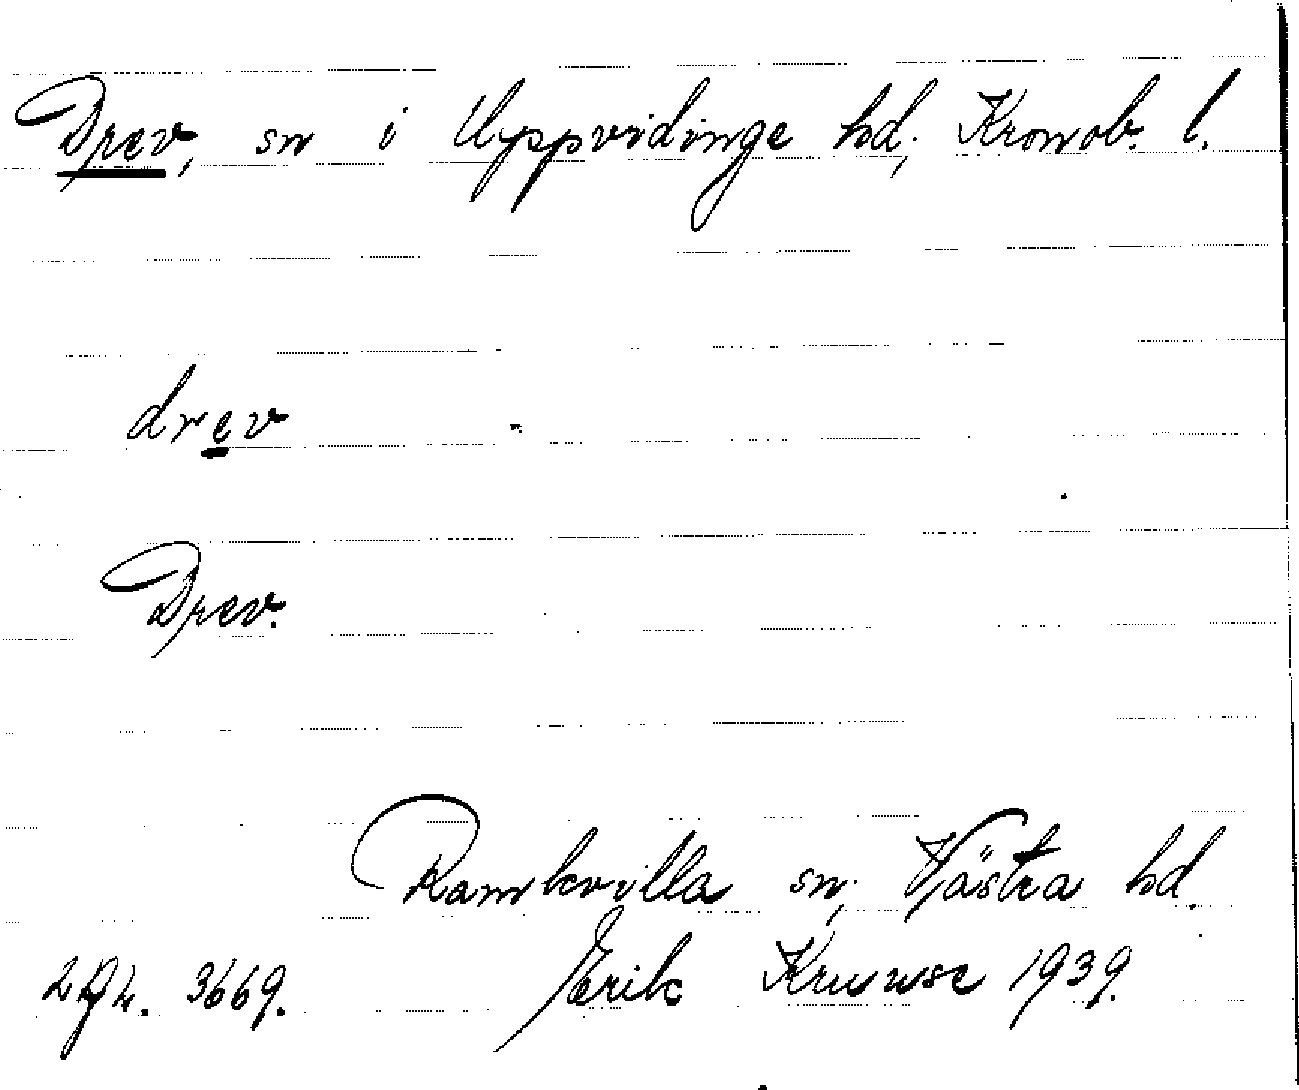 Drev, sn i Uppvidinge hd, Kronob. l.
drev
Drev.
Ramkvilla sn, Västra hd.
3669. Erik Kruuse 1939.